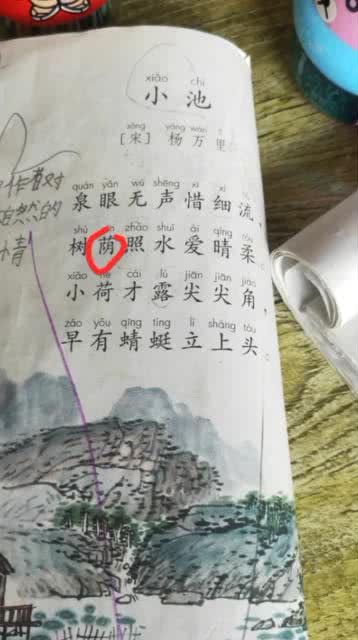 xiǎo chí
小 池
sòng yáng wàn
[宋] 杨万里
作者对
自然的
情
quán yǎn wú shēng xī xì
泉眼无声惜细流，
shù zhào shuǐ ài qíng
树荫照水爱晴柔。
xiǎo cái lù jiān jiān
小荷才露尖尖角，
zǎo yǒu qīng tíng lì shàng tóu
早有蜻蜓立上头。